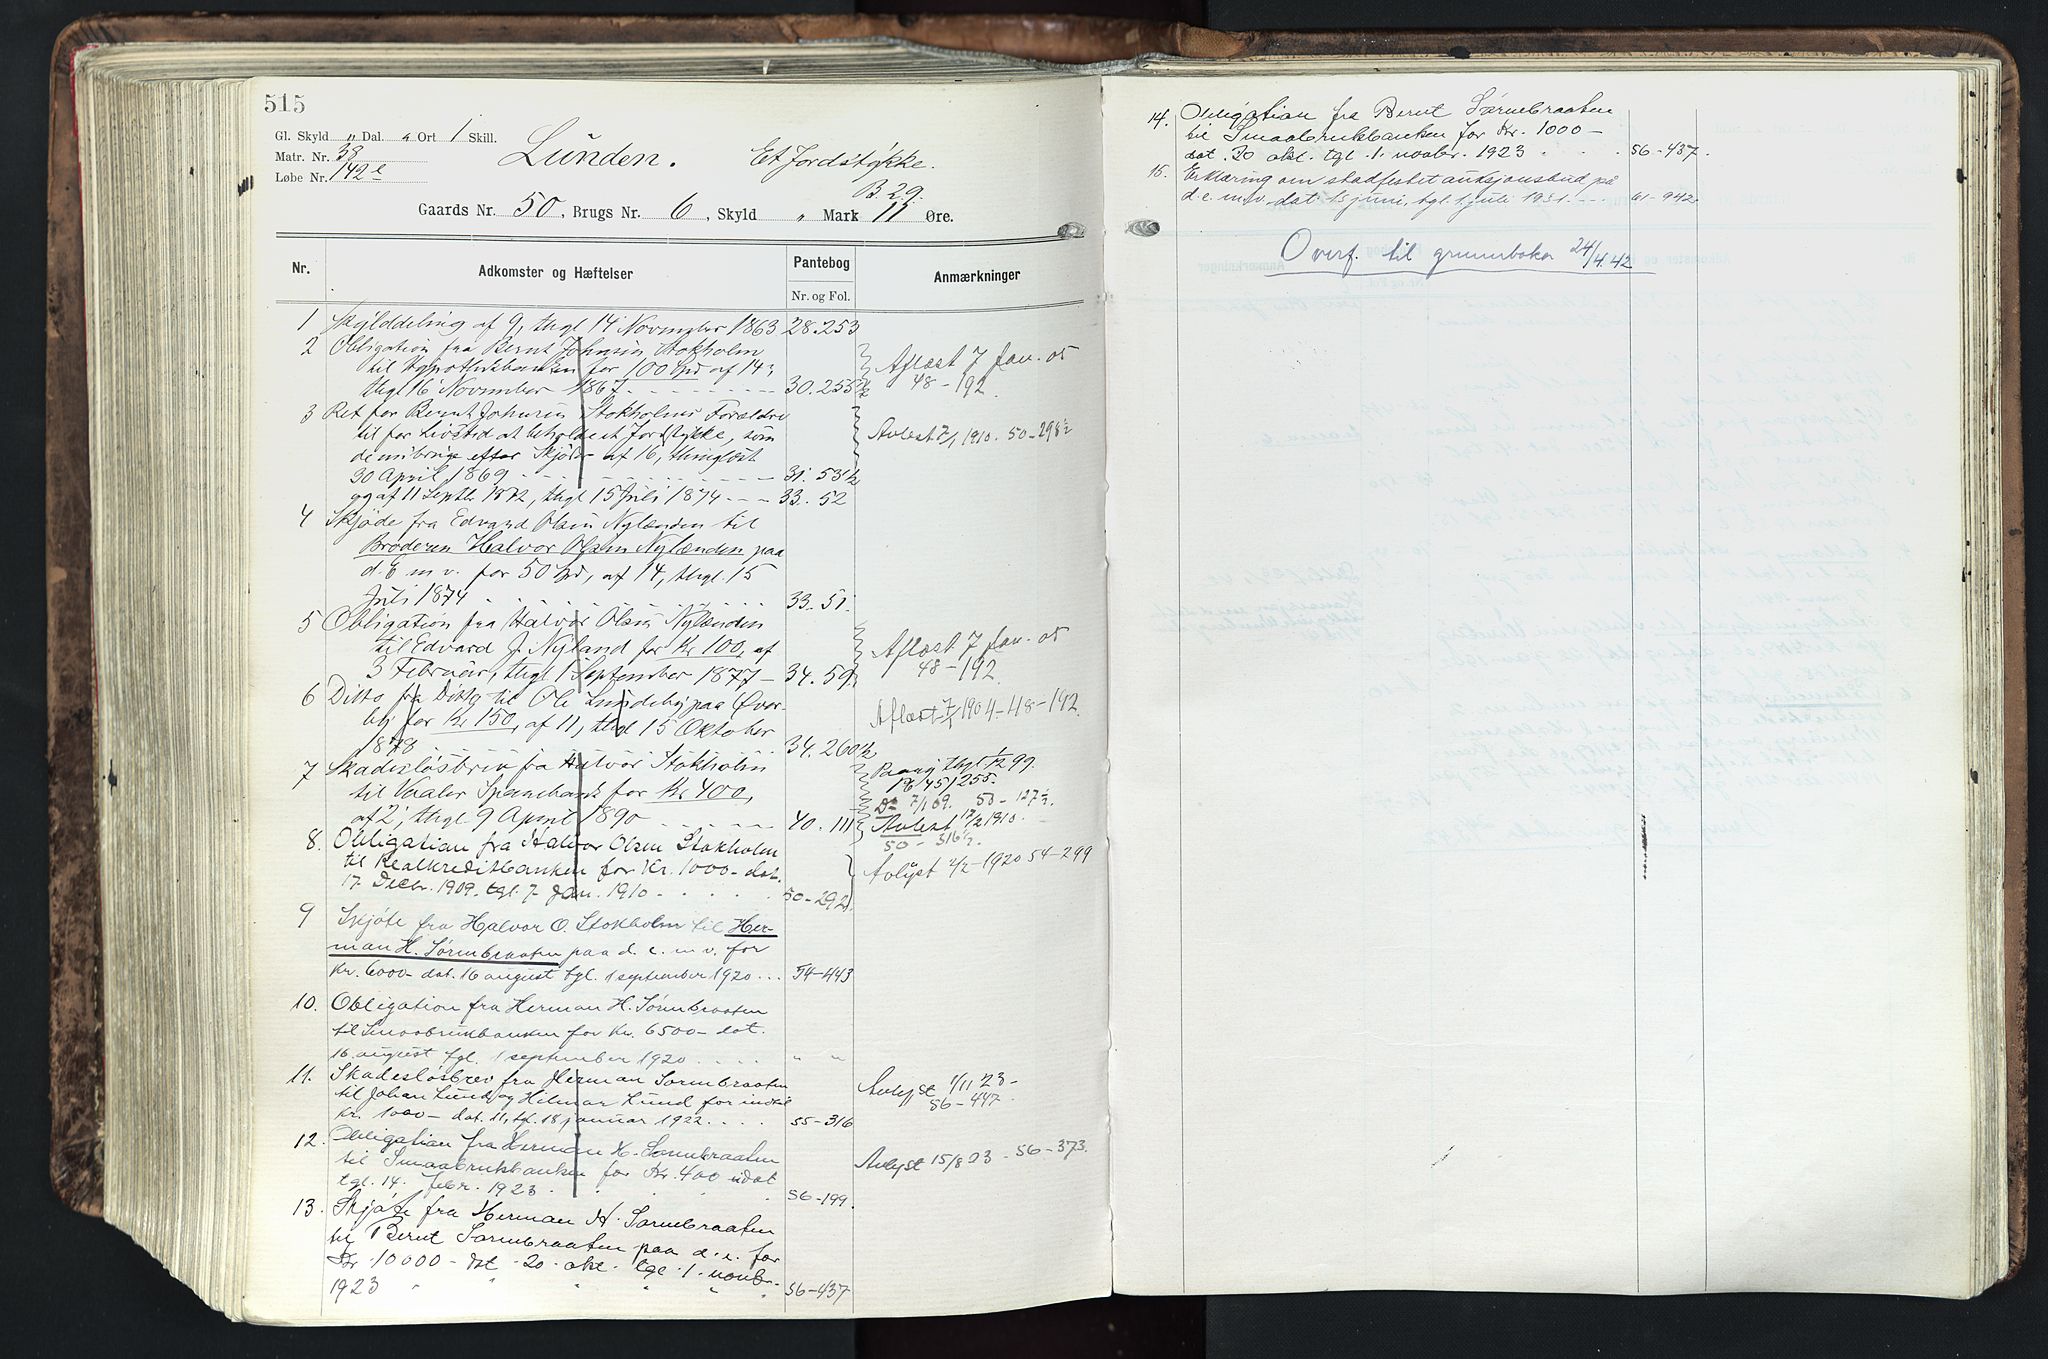 515
Gl. Skyld „ Dal. „ Ort 1 Skill.
Matr. Nr. 38
Løbe Nr. 142e
Lunden. Et Jordstykke.
B. 29.
Gaards Nr. 50, Brugs Nr. 6, Skyld „ Mark 11 Øre.
Nr. Adkomster og Hæftelser Pantebog Anmærkninger
Nr. og Fol.
1 Skylddeling af 9, thgl 14 November 1863 28.253
2 Obligation fra Bernt Johnsen Stokholm
til Hypothekbanken for 100 Spd af 14,
thgl 16 November 1867 30.255½
Aflæst 7 Jan. 05
48-192.
3 Ret for Bernt Johnsen Stokholms Forældre
til for Livstid at beholde et Jordstykke, som
de nu bruge efter Skjøde af 16, thinglæst
30 April 1869 31.53½
og af 11 Septbr 1872, thgl 15 Juli 1874 33.52
Avlest 7/1 1910. 50-298½
4 Skjøde fra Edvard Olsen Nylænden til
Broderen Halvor Olsen Nylænden paa
d. E. m. v. for 50 Spd, af 14, thgl. 15
Juli 1874 33.51.
5 Obligation fra Halvor Olsen Nylænden
til Edvard J. Nyland for Kr 100, af
3 Februar, thgl 1 September 1877 - 34.59.
Aflæst 7 Jan. 05
48-192.
6 Ditto fra Ditto til Ole Lundeby paa Øver-
by for Kr 150, af 11, thgl 15 Oktober
1878 34.260½
Aflæst 7/1 1904-48-192.
7 Skadesløsbrev fra Halvor Stokholm
til Vaaler Sparebank for Kr 400,
af 2, thgl 9 April 1890 40.111
Paany thgl 1/12 99.
45/255.
Do 7/1 09. 50-127½.
Avlest 17/2 1910.
50-316½.
8. Obligation fra Halvor Olsen Stokholm
til Realkreditbanken for Kr. 1000- dat.
17. Decbr. 1909. tgl. 7. Jan. 1910 50-292.
Avlyst 2/2-1920 54-299
9 Skjøte fra Halvor O. Stokholm til Her-
man H. Sørmbraaten paa d. e. m. v. for
Kr. 6000- dat. 16 august tgl. 1 september 1920 ... 54-443
10. Obligation fra Herman H. Sørmbraaten
til Smaabrukbanken for Kr. 6500- dat.
16. august tgl. 1 september 1920 .... „ „
11. Skadesløsbrev fra Herman Sørmbraaten
til Johan Lund og Hilmar Lund for indtil
kr. 1000- dat. 11, tgl. 18 januar 1922 .... 55-316
Avlyst 1/11 23-
56-447.
12. Obligation fra Herman H. Sørmbraaten
til Smaabrukbanken for Kr. 400 udat
tgl. 14. febr. 1923. 56-199.
Avlyst 15/8 23 - 56-373.
13. Skjøte fra Herman H. Sørmbraaten
til Bernt Sørmbraaten paa d. e. for
Kr. 10000- dat. 20. okt. tgl. 1. novbr.
1923 56-437
14. Obligation fra Bernt Sørmbraaten
til Smaabrukbanken for Kr. 1000-
dat. 20 okt. tgl. 1. novbr. 1923 . . . 56-437.
15. Erklæring om stadfestet auksjonsbud på
d. e. m. v. dat 13 juni, tgl. 1 juli 1931. . . . 61-942.
Overf. til grunnboka 24/4.42